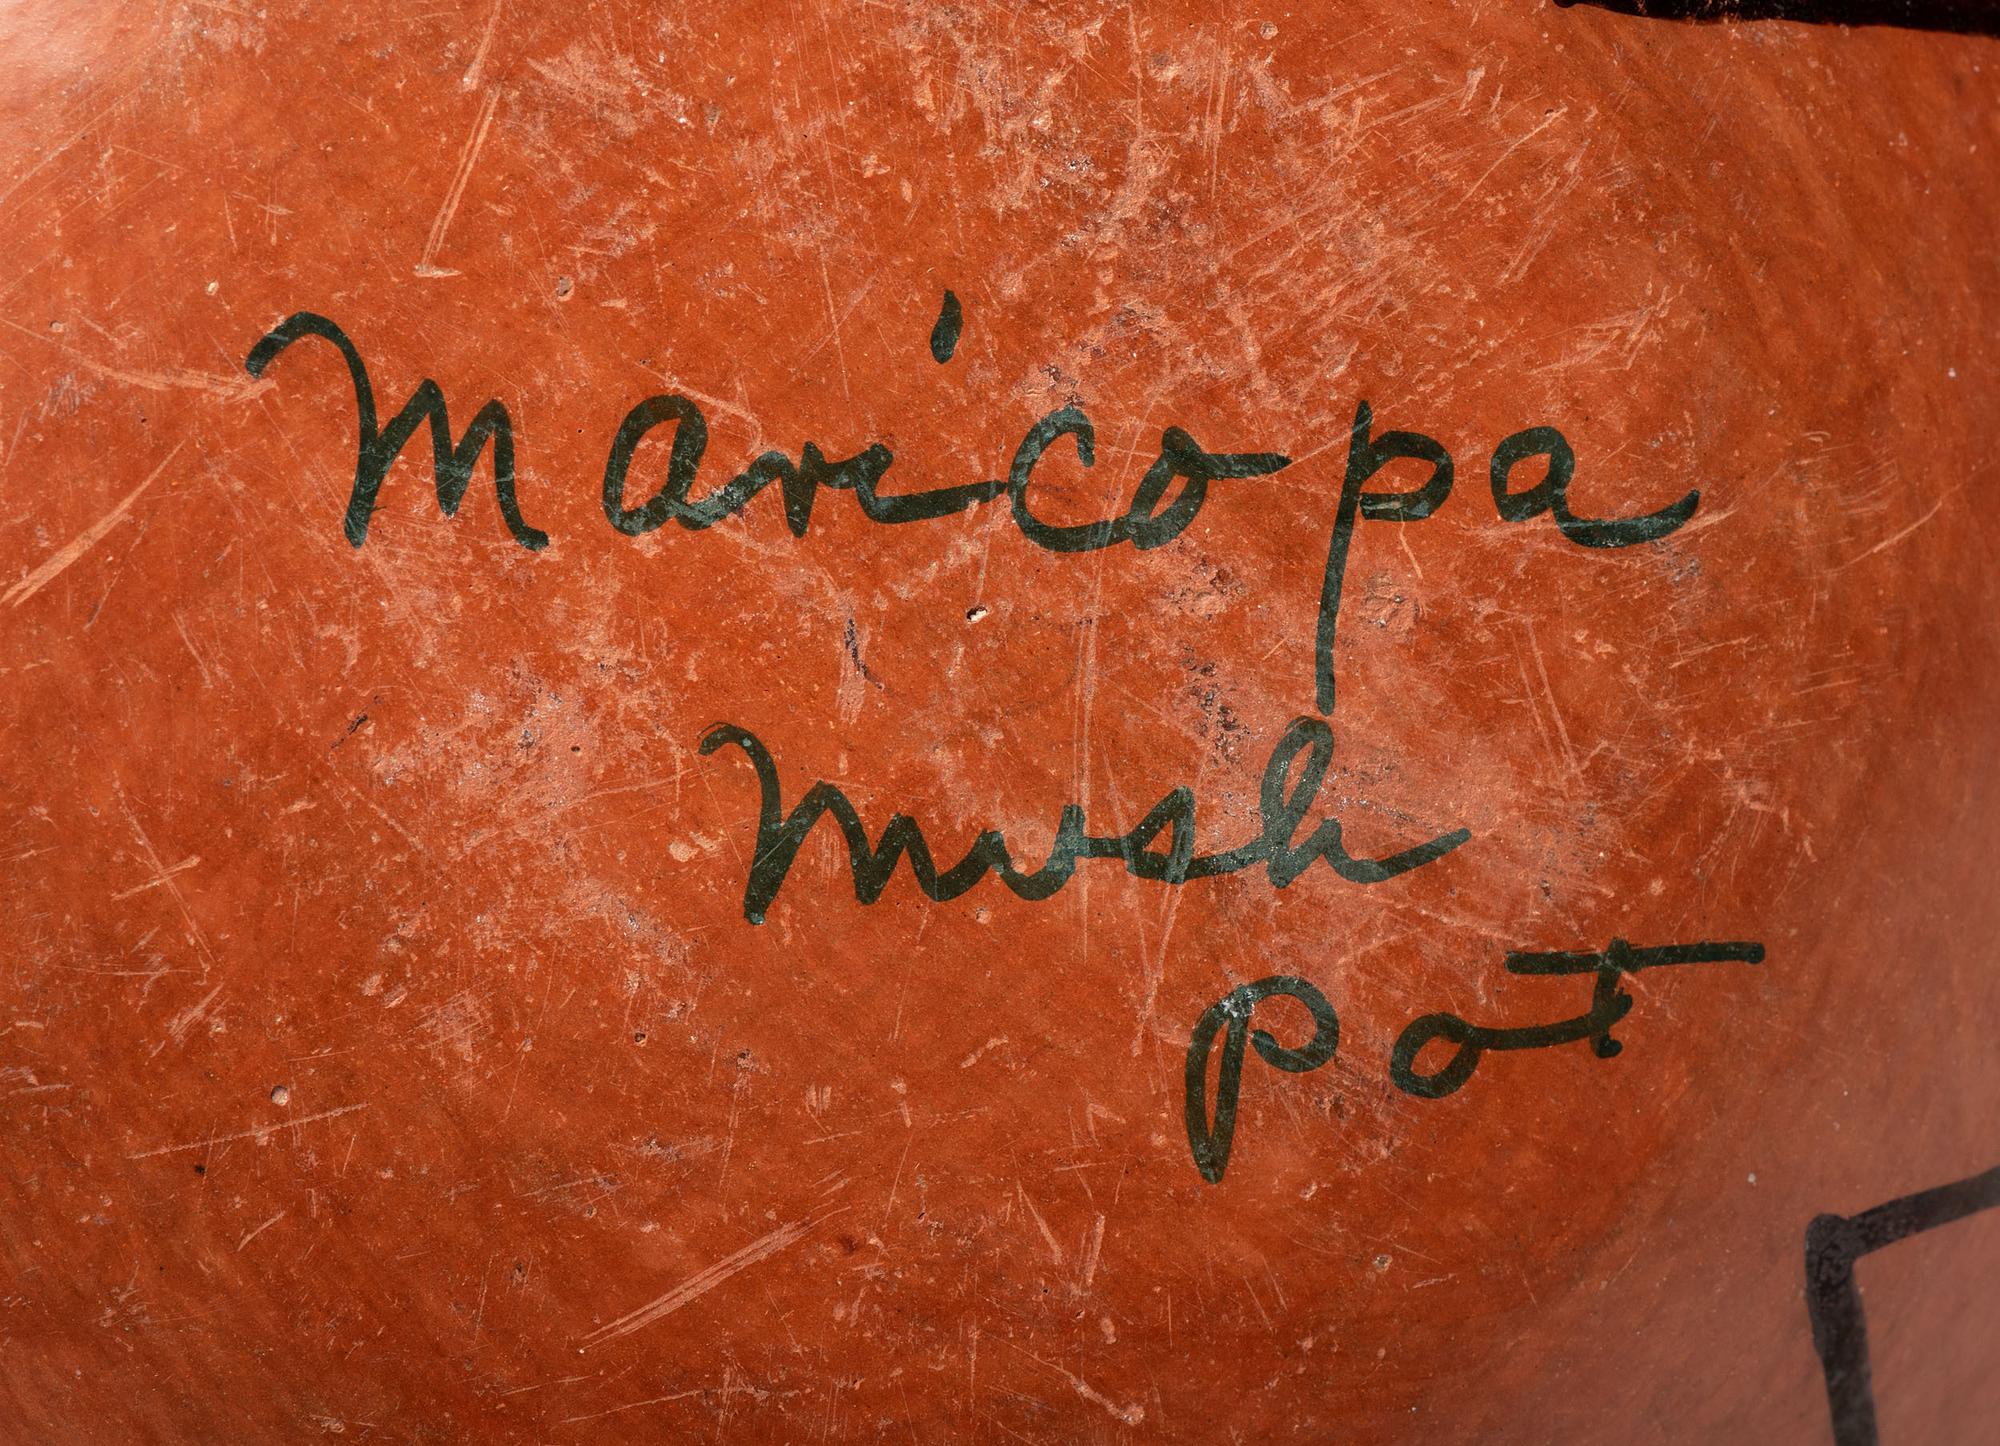 Maricopa
Mush
pot